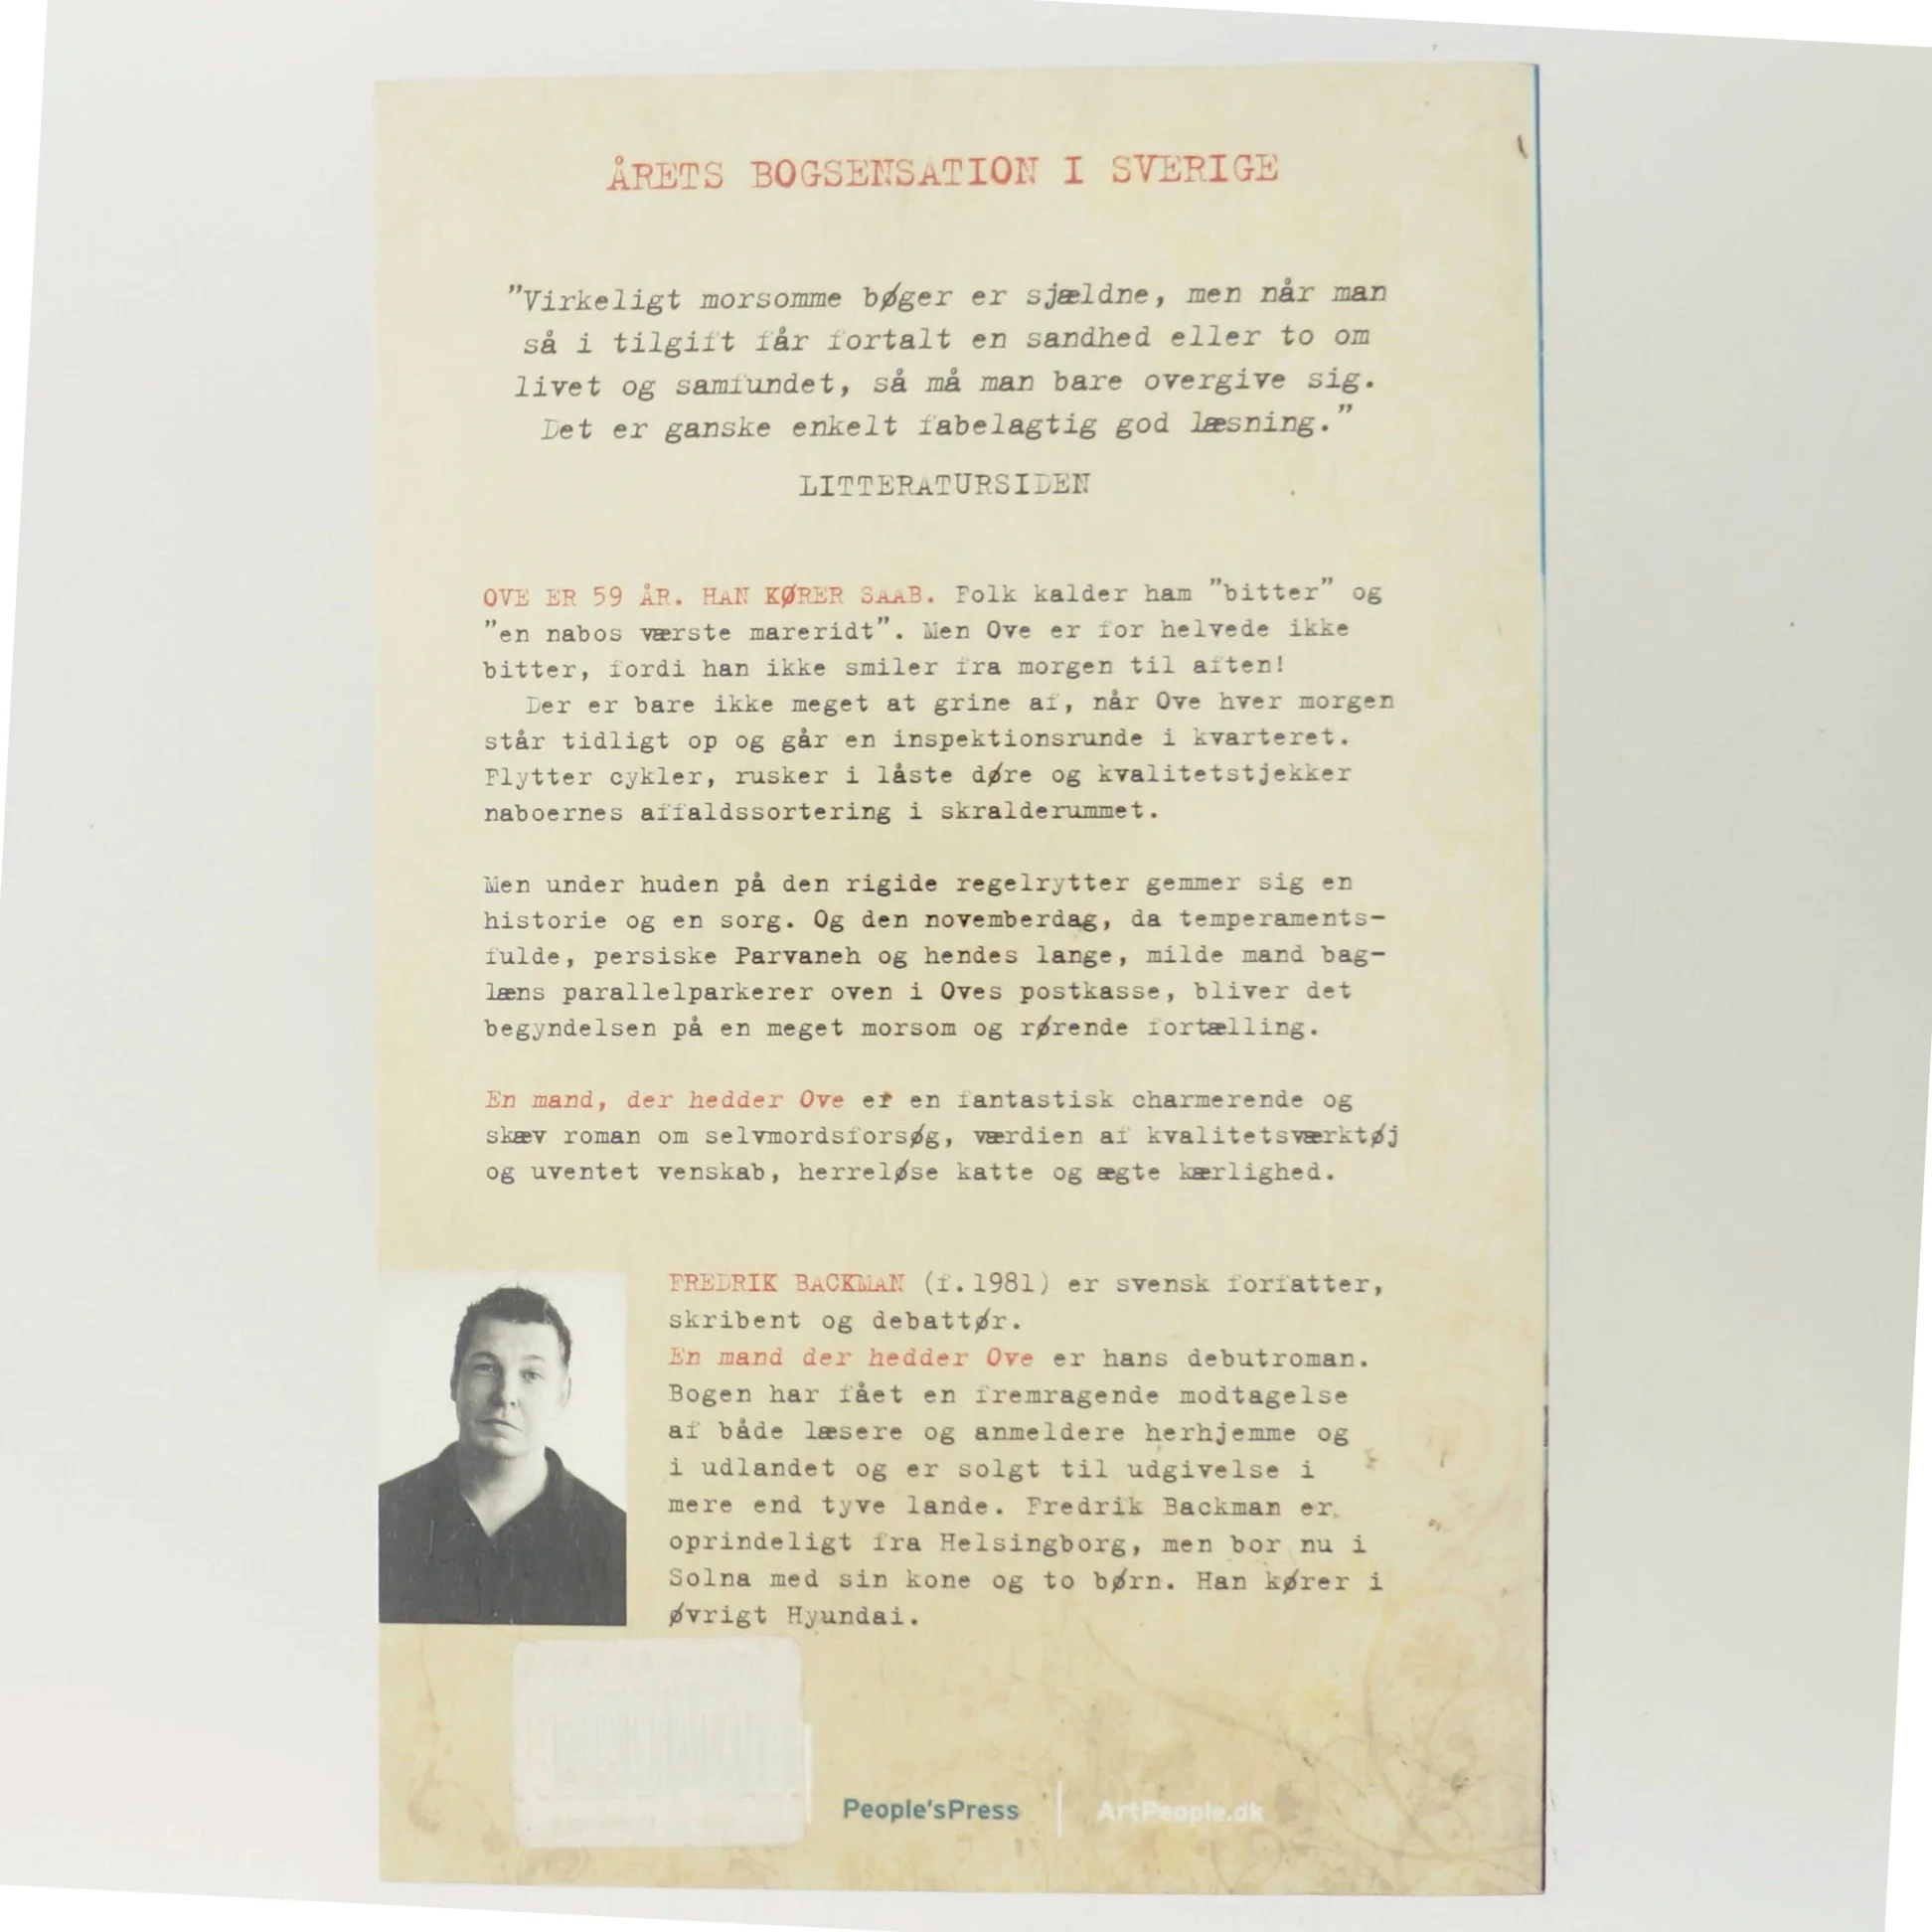 ÅRETS BOGSENSATION I SVERIGE
”Virkeligt morsomme bøger er sjældne, men når man
så i tilgift får fortalt en sandhed eller to om
livet og samfundet, så må man bare overgive sig.
Det er ganske enkelt fabelagtig god læsning.”
LITTERATURSIDEN
OVE ER 59 ÅR. HAN KØRER SAAB. Folk kalder ham ”bitter” og
”en nabos værste mareridt”. Men Ove er for helvede ikke
bitter, fordi han ikke smiler fra morgen til aften!
Der er bare ikke meget at grine af, når Ove hver morgen
står tidligt op og går en inspektionsrunde i kvarteret.
Flytter cykler, rusker i låste døre og kvalitetstjekker
naboernes affaldssortering i skralderummet.
Men under huden på den rigide regelrytter gemmer sig en
historie og en sorg. Og den novemberdag, da temperaments-
fulde, persiske Parvaneh og hendes lange, milde mand bag-
læns parallelparkerer oven i Oves postkasse, bliver det
begyndelsen på en meget morsom og rørende fortælling.
En mand, der hedder Ove er en fantastisk charmerende og
skæv roman om selvmordsforsøg, værdien af kvalitetsværktøj
og uventet venskab, herreløse katte og ægte kærlighed.
FREDRIK BACKMAN (f.1981) er svensk forfatter,
skribent og debattør.
En mand der hedder Ove er hans debutroman.
Bogen har fået en fremragende modtagelse
af både læsere og anmeldere herhjemme og
i udlandet og er solgt til udgivelse i
mere end tyve lande. Fredrik Backman er
oprindeligt fra Helsingborg, men bor nu i
Solna med sin kone og to børn. Han kører i
øvrigt Hyundai.
People'sPress | ArtPeople.dk